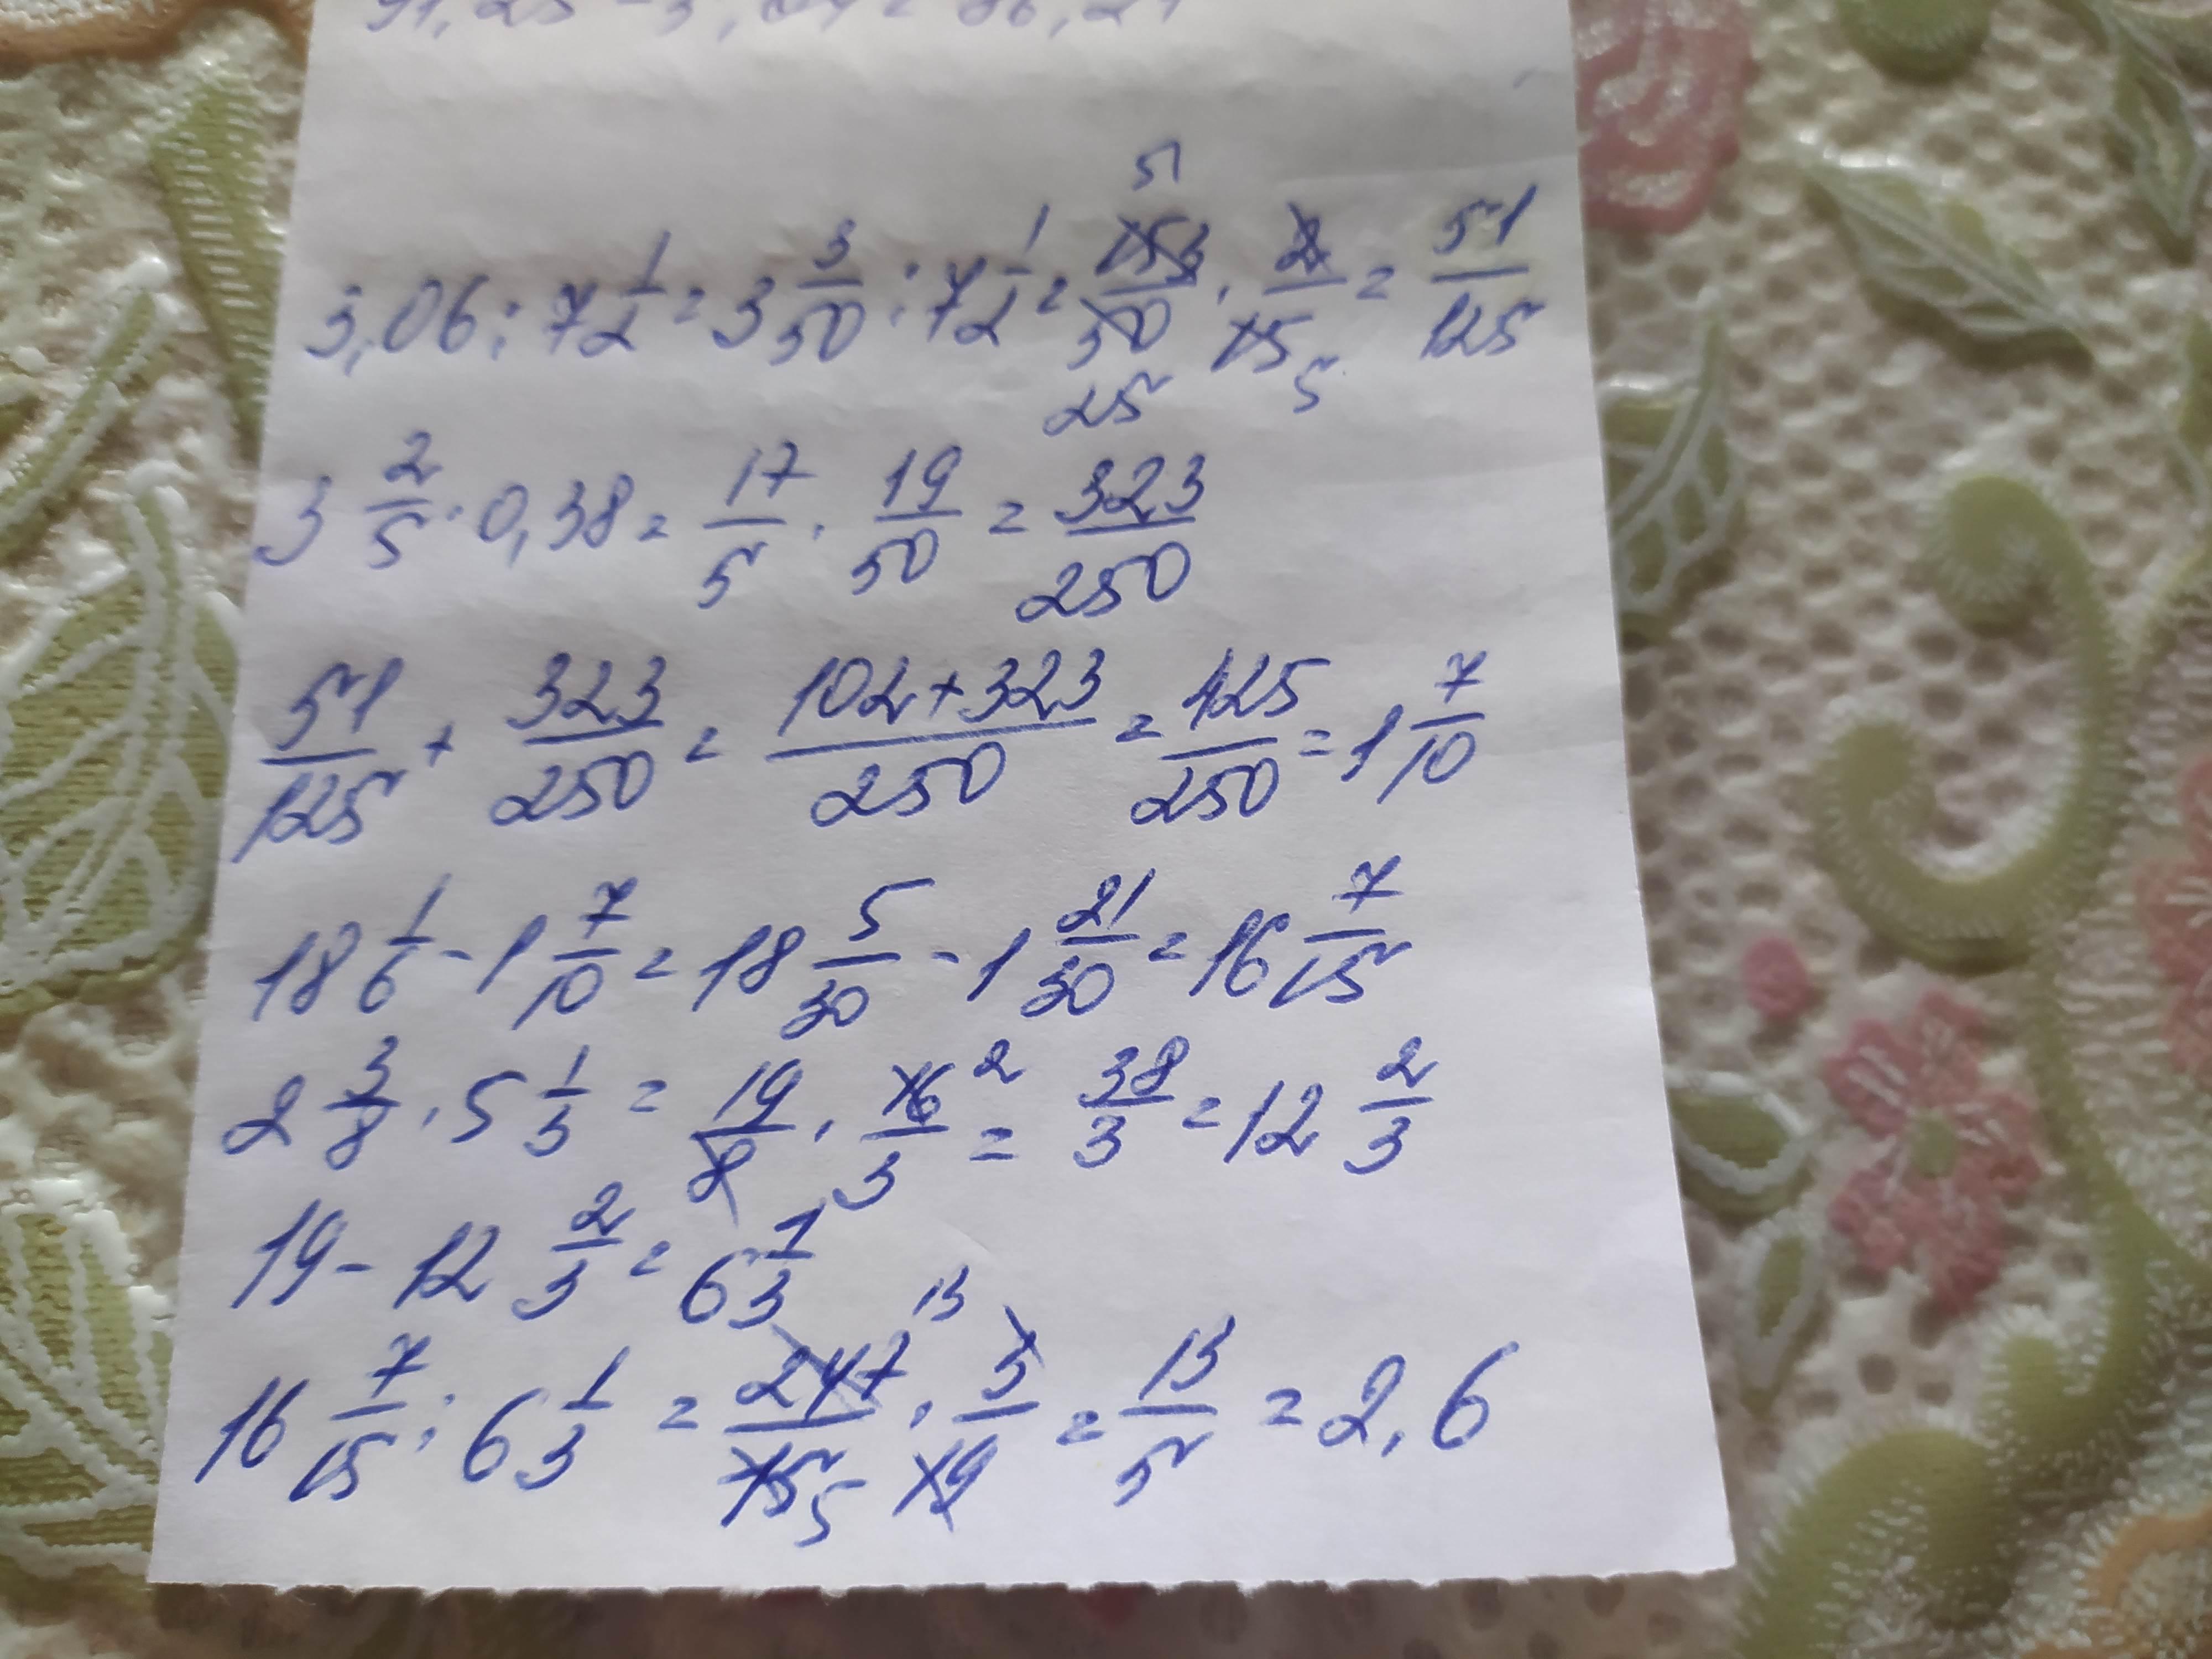 3,06 : 7 1/2 = 3 3/50 : 7 1/2 = 153/50 · 2/15 = 51/125
51 25 5
3 2/5 · 0,38 = 17/5 · 19/50 = 323/250
51/125 + 323/250 = 102+323/250 = 425/250 = 1 7/10
18 1/6 - 1 7/10 = 18 5/30 - 1 21/30 = 16 7/15
2 3/8 · 5 1/3 = 19/8 · 16/3 2 = 38/3 = 12 2/3
19 - 12 2/3 = 6 1/3
16 7/15 : 6 1/3 = 247/15 13 5 · 3/19 = 13/5 = 2,6